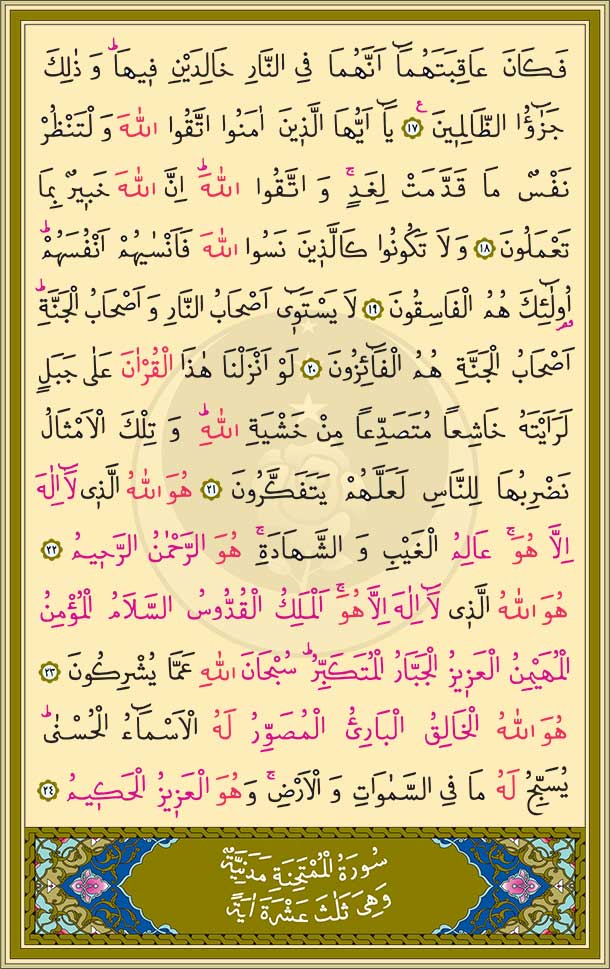 فَكَانَ عَاقِبَتَهُمَٓا اَنَّهُمَا فِي النَّارِ خَالِدَيْنِ فٖيهَاؕ وَ ذٰلِكَ
جَزٰٓؤُا الظَّالِمٖينَ ع ﴿١٧﴾ يَٓا اَيُّهَا الَّذٖينَ اٰمَنُوا اتَّقُوا اللّٰهَ وَ لْتَنْظُرْ
نَفْسٌ مَا قَدَّمَتْ لِغَدٍۚ وَ اتَّقُوا اللّٰهَؕ اِنَّ اللّٰهَ خَبٖيرٌ بِمَا
تَعْمَلُونَ ﴿١٨﴾ وَ لَا تَكُونُوا كَالَّذٖينَ نَسُوا اللّٰهَ فَاَنْسٰيهُمْ اَنْفُسَهُمْؕ
اُولٰٓئِكَ هُمُ الْفَاسِقُونَ ﴿١٩﴾ لَا يَسْتَوٖٓى اَصْحَابُ النَّارِ وَ اَصْحَابُ الْجَنَّةِؕ
اَصْحَابُ الْجَنَّةِ هُمُ الْفَٓائِزُونَ ﴿٢٠﴾ لَوْ اَنْزَلْنَا هٰذَا الْقُرْاٰنَ عَلٰى جَبَلٍ
لَرَاَيْتَهُ خَاشِعًا مُتَصَدِّعًا مِنْ خَشْيَةِ اللّٰهِؕ وَ تِلْكَ الْاَمْثَالُ
نَضْرِبُهَا لِلنَّاسِ لَعَلَّهُمْ يَتَفَكَّرُونَ ﴿٢١﴾ هُوَ اللّٰهُ الَّذٖى لَٓا اِلٰهَ
اِلَّا هُوَۚ عَالِمُ الْغَيْبِ وَ الشَّهَادَةِۚ هُوَ الرَّحْمٰنُ الرَّحٖيمُ ﴿٢٢﴾
هُوَ اللّٰهُ الَّذٖى لَٓا اِلٰهَ اِلَّا هُوَۚ اَلْمَلِكُ الْقُدُّوسُ السَّلَامُ الْمُؤْمِنُ
الْمُهَيْمِنُ الْعَزٖيزُ الْجَبَّارُ الْمُتَكَبِّرُؕ سُبْحَانَ اللّٰهِ عَمَّا يُشْرِكُونَ ﴿٢٣﴾
هُوَ اللّٰهُ الْخَالِقُ الْبَارِئُ الْمُصَوِّرُ لَهُ الْاَسْمَٓاءُ الْحُسْنٰىؕ
يُسَبِّحُ لَهُ مَا فِي السَّمٰوَاتِ وَ الْاَرْضِۚ وَ هُوَ الْعَزٖيزُ الْحَكٖيمُ ﴿٢٤﴾
سُورَةُ الْمُمْتَحِنَةِ مَدَنِيَّةٌ
وَهِيَ ثَلٰثَ عَشْرَةَ اٰيَةً